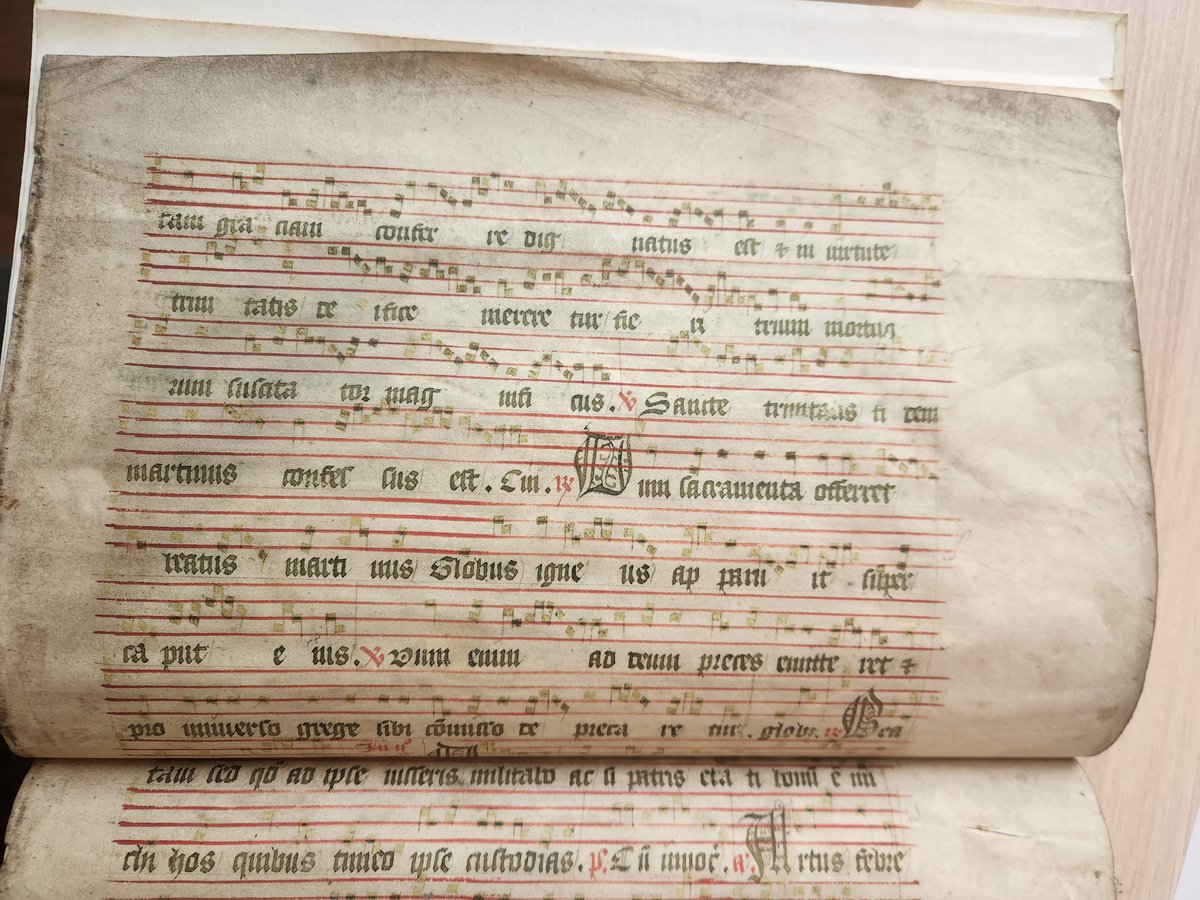 tam gra ciam confer re dig natus est ⁊ in uirtute
trini tatis de ifice merere tur fie ri trium mortuo
rum suscita tor mag nifi cus. ℣ Sancte trinitatis fi dem
martinus confes sus est. Cui. ℟ Dum sacramenta offerret
beatus marti nus Globus igne us ap paru it super
ca put e ius. ℣ Dum enim ad deum preces emitte ret ⁊
pro uniuerso grege sibi cōmisso de preca re tur. globꝰ. ℟ Bea
tam sed qd ad ipse misseris militabo ac si patris
chi hos quibus timeo ipse custodias. ps. Cū inuoc̄. a. Artus febre